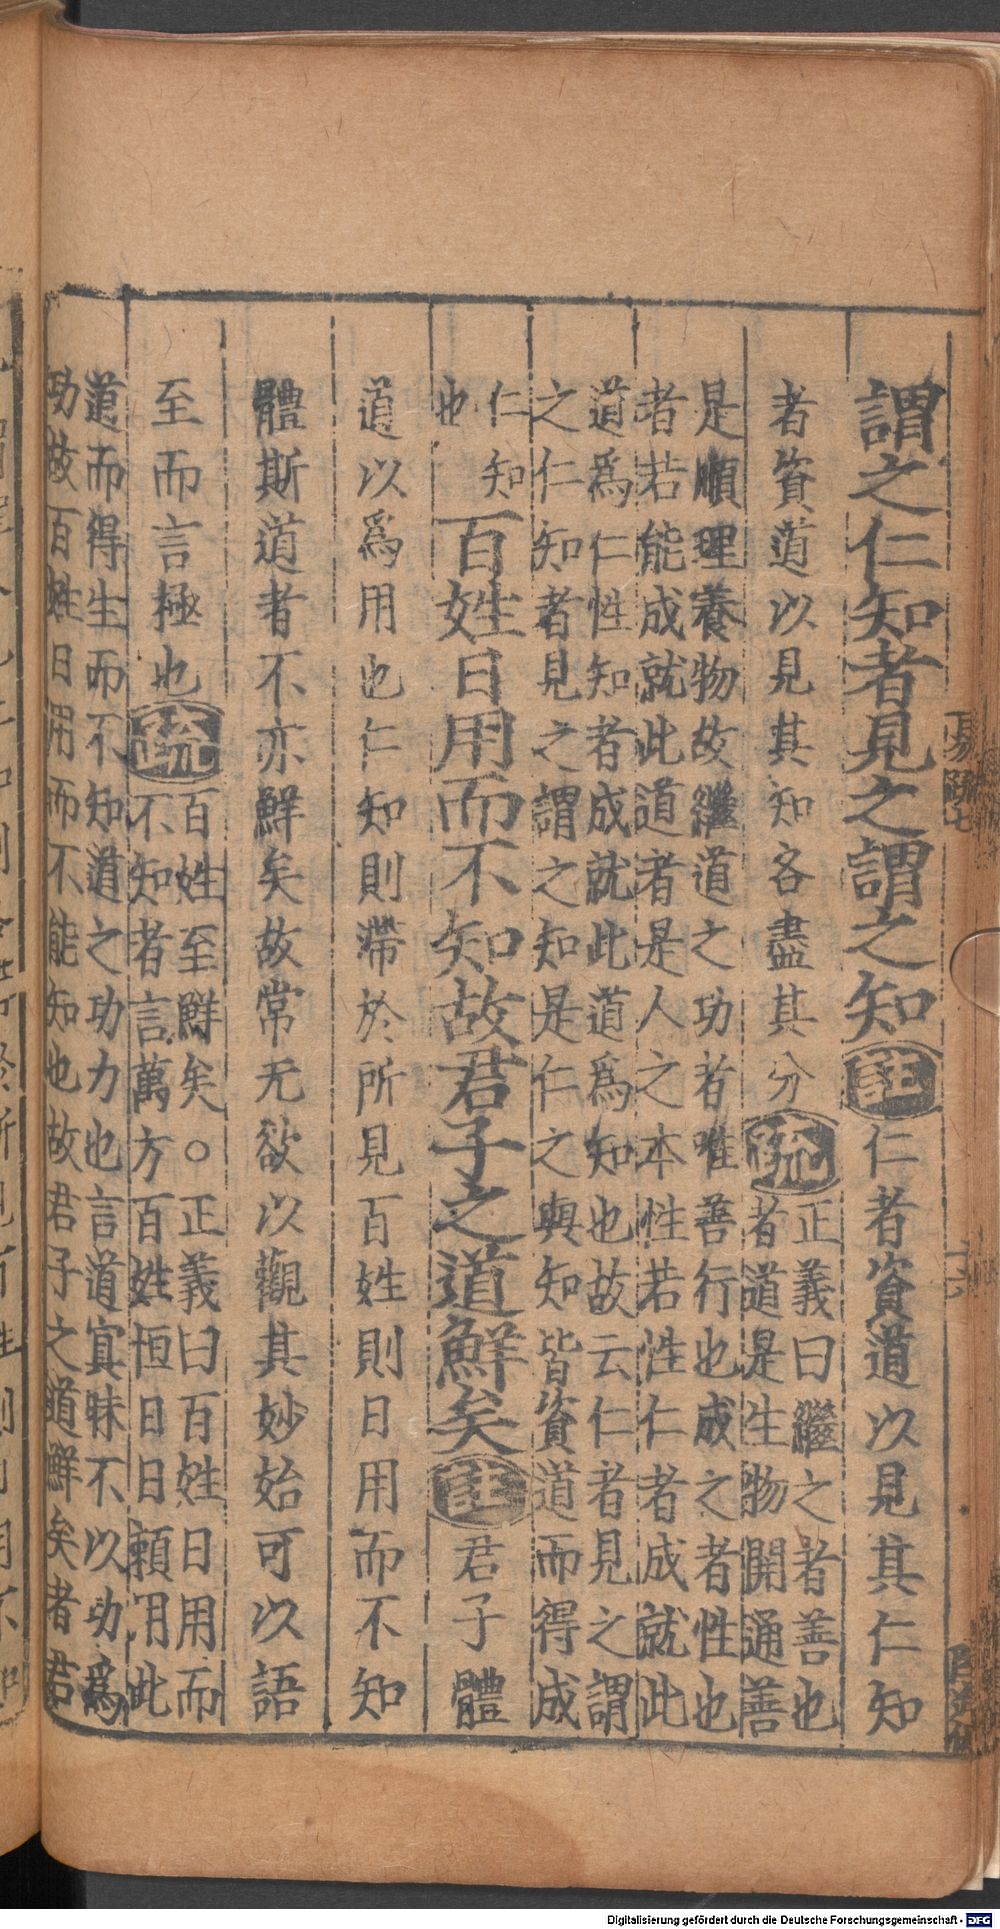 謂之仁知者見之謂之知註仁者資道以見其仁知
者資道以見其知各盡其分疏正義曰繼之者善也
者道是生物開通善
是順理養物故繼道之功者唯善行也成之者性也
者若能成就此道者是人之本性若性仁者成就此
道爲仁性知者成就此道爲知也故云仁者見之謂
之仁知者見之謂之知是仁之與知皆資道而得成
仁知
也
百姓日用而不知故君子之道鮮矣註君子體
道以爲用也仁知則滯於所見百姓則日用而不知
體斯道者不亦鮮矣故常无欲以觀其妙始可以語
至而言極也疏百姓至鮮矣○正義曰百姓日用而
不知者言萬方百姓恒日日賴用此
道而得生而不知道之功力也言道冥昧不以功爲
功故百姓日用而不能知也故君子之道鮮矣者君
易疏七
十六
Digitalisierung gefördert durch die Deutsche Forschungsgemeinschaft - DFG